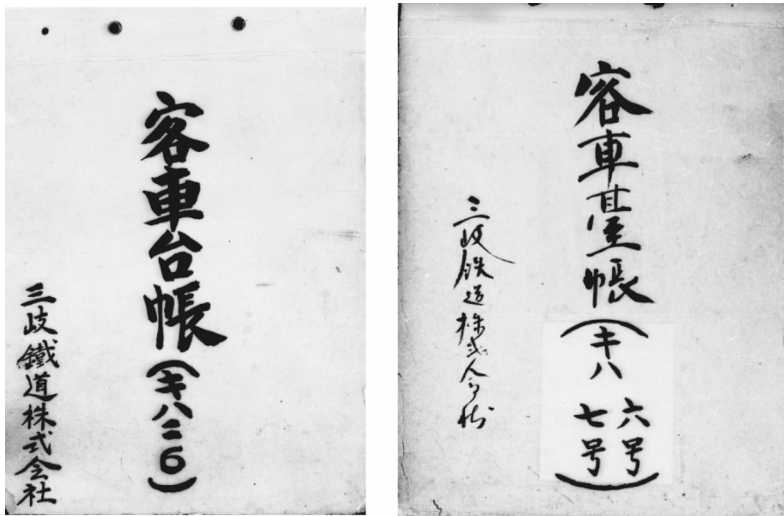 客車台帳(キハニ6)
三岐鐵道株式会社
客車臺帳
(キハ
六号
七号)
三岐鉄道株式会社